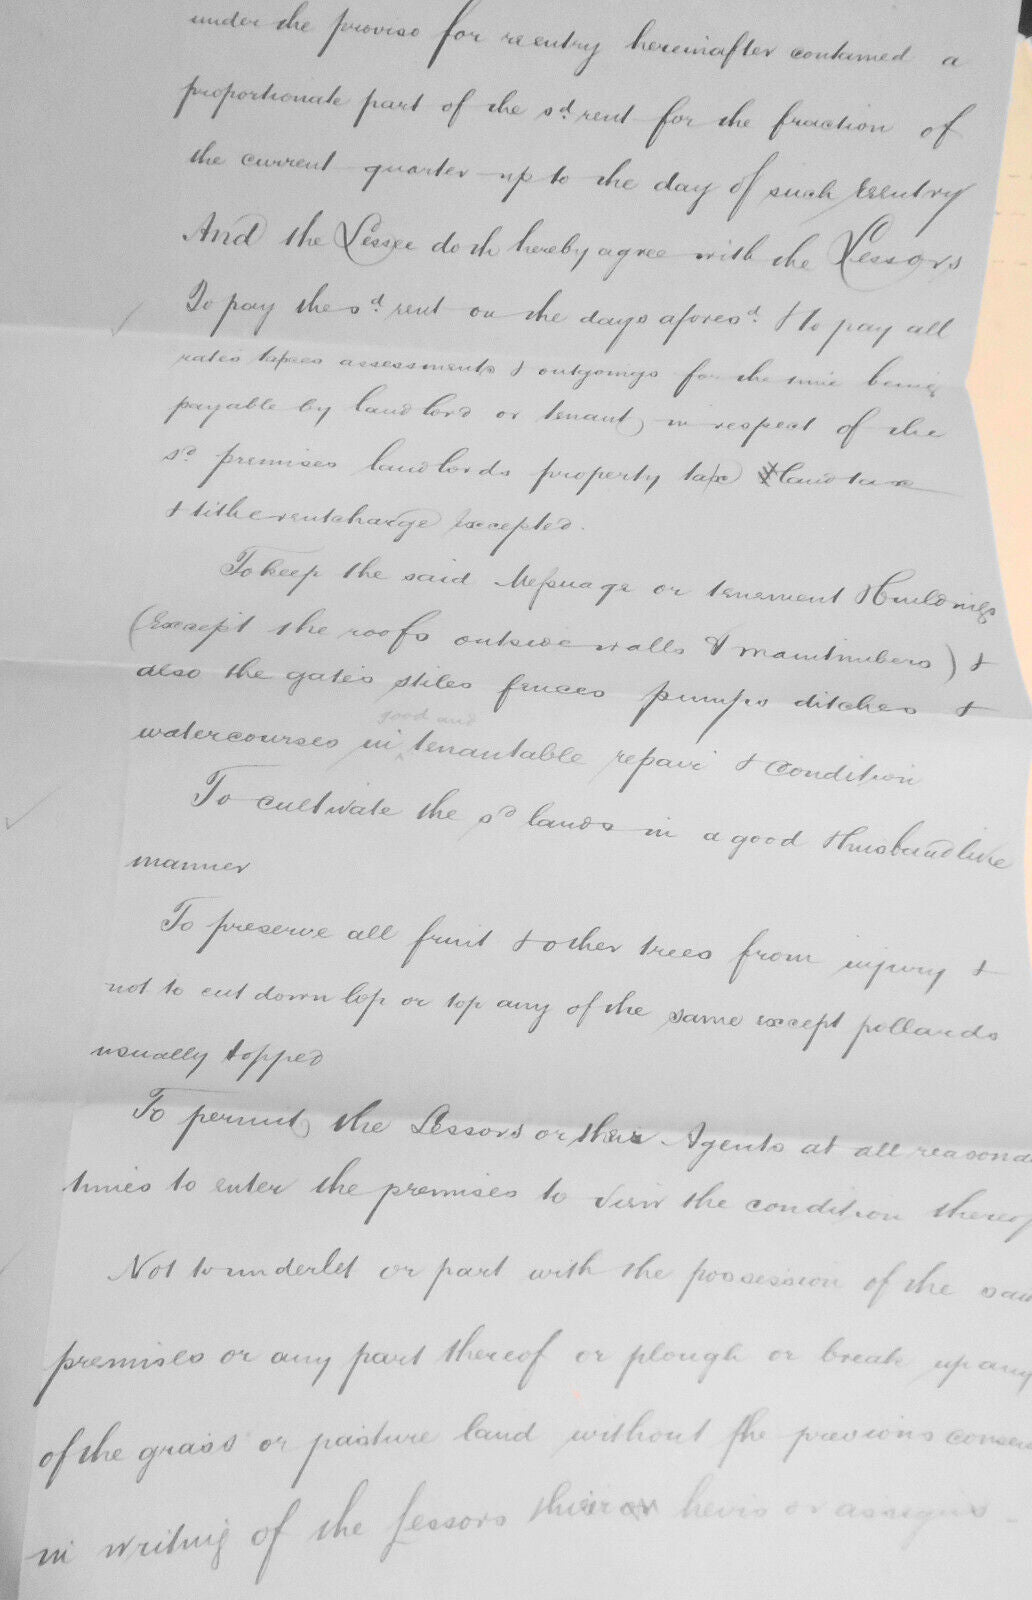 under the proviso for reentry hereinafter contained a
proportionate part of the sd. rent for the fraction of
the current quarter up to the day of such reentry
And the Lessee doth hereby agree with the Lessors
To pay the sd. rent on the days aforesd. & to pay all
rates taxes assessments & outgoings for the time being
payable by landlord or tenant in respect of the
sd premises landlords property tax land tax
& tithe rentcharge excepted.
To keep the said Messuage or tenement & buildings
(Except the roofs outside walls & maintimbers) &
also the gates stiles fences pumps ditches &
good and
watercourses in tenantable repair & condition
To cultivate the sd lands in a good & husbandlike
manner
To preserve all fruit & other trees from injury &
not to cut down lop or top any of the same except pollards
usually topped
To permit the Lessors or their Agents at all reasona
times to enter the premises to view the condition thereof
Not to underlet or part with the possession of the sai
premises or any part thereof or plough or break up any
of the grass or pasture land without the previous consen
in writing of the Lessors their heirs or assigns